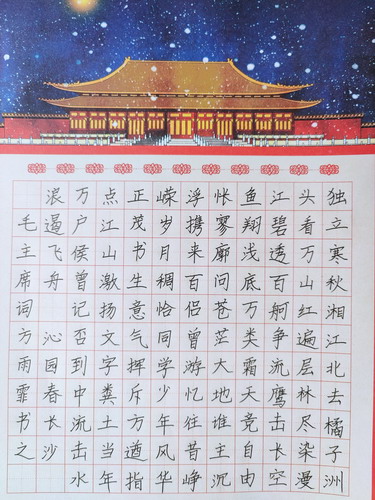 独立寒秋湘江北去橘子洲
头看万山红遍层林尽染漫
江碧透百舸争流鹰击长空
鱼翔浅底万类霜天竞自由
怅寥廓问苍茫大地谁主沉
浮携来百侣曾游忆往昔峥
嵘岁月稠恰同学少年风华
正茂书生意气挥斥方遒指
点江山激扬文字粪土当年
万户侯曾记否到中流击水
浪遏飞舟 沁园春长沙
毛主席词方雨霏书之